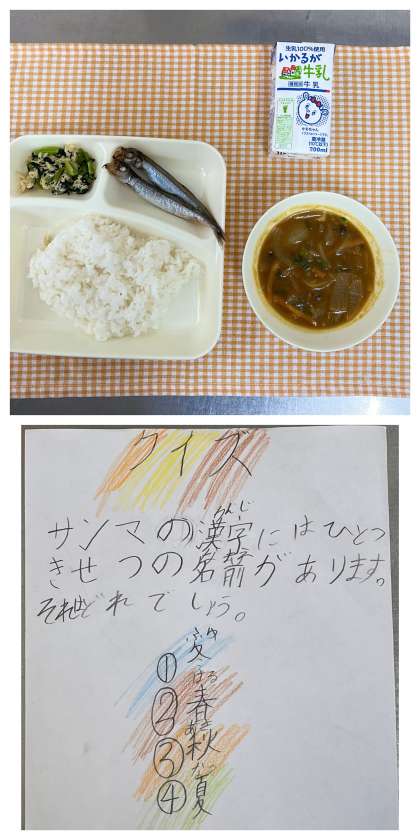 生乳100%使用
いかるが
牛乳
種類別 牛乳
要冷蔵
(10℃以下)
200ml
クイズ
かんじ
サンマの漢字にはひとつ
きせつの名前があります。
それはどれでしょう。
ふゆ
①変
はる
②春
あき
③秋
なつ
④夏